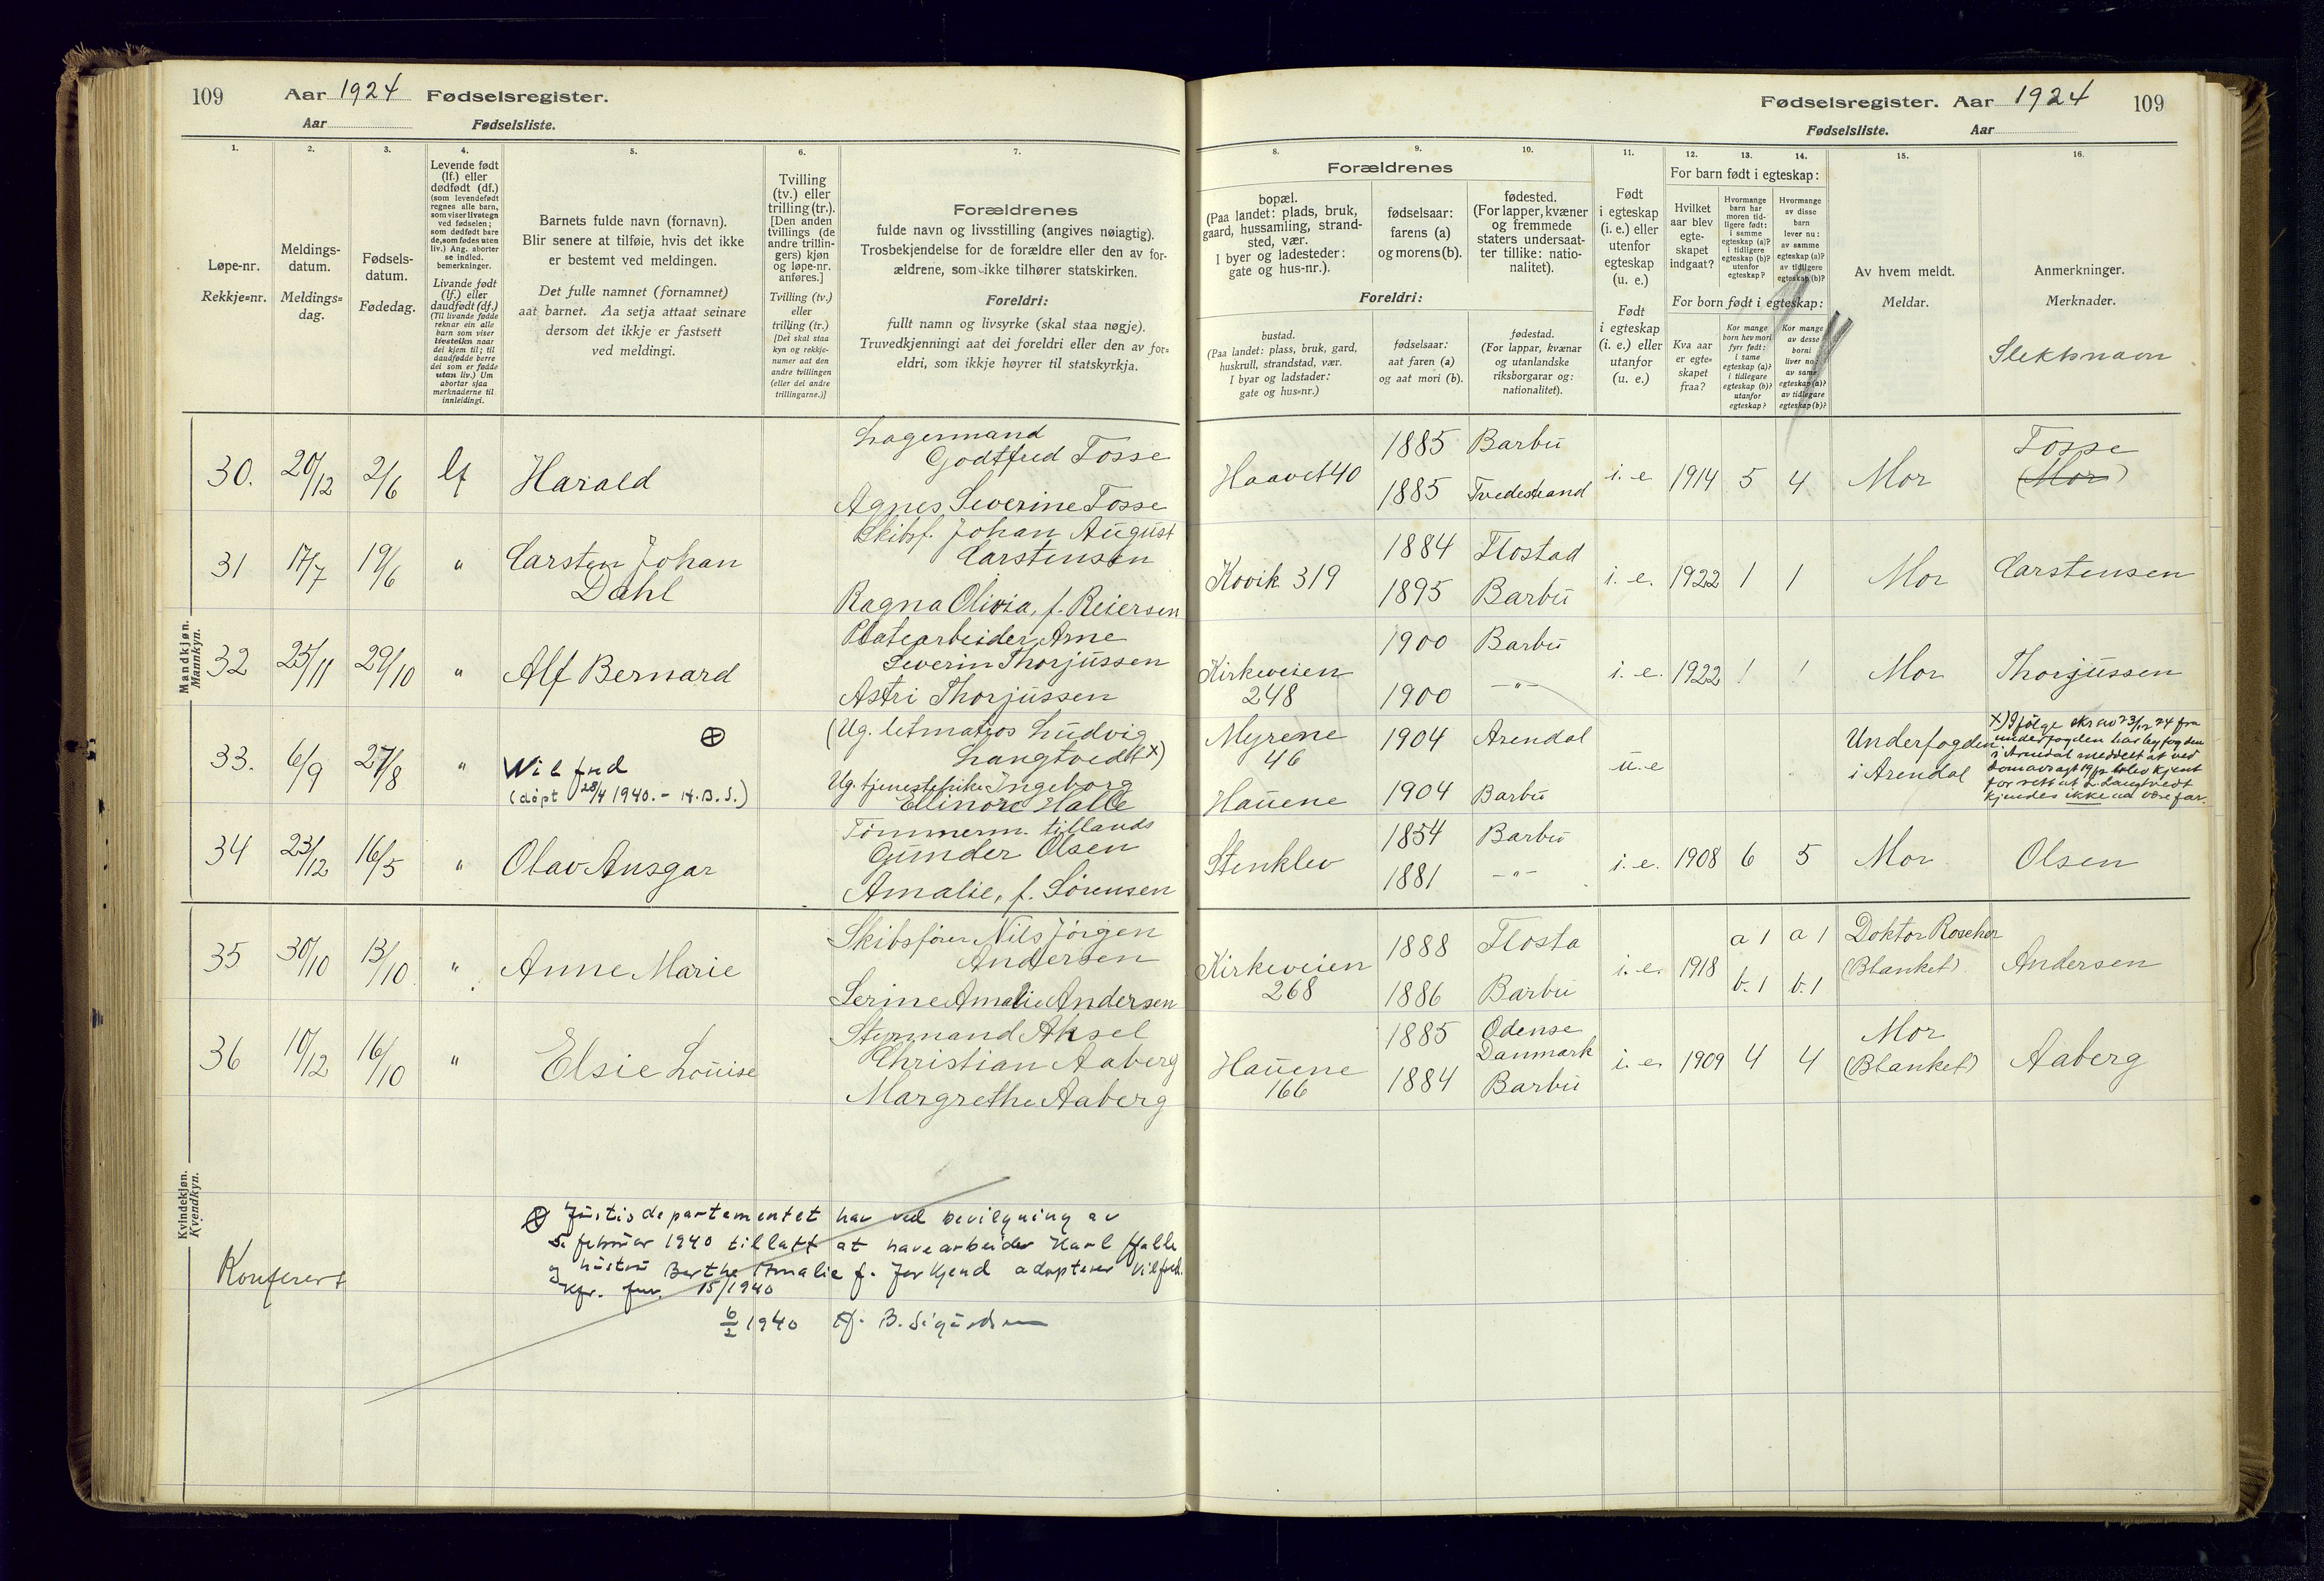 109 Aar 1924 Fødselsregister.
Aar Fødselsliste.
1.
2.
3.
4.
5.
6.
7.
Løpe-nr.
Rekkje=nr.
Meldings-
datum.
Meldings=
dag.
Fødsels-
datum.
Fødedag.
Levende født
(lf.) eller
dødfødt (df.)
(som levendefødt
regnes alle barn,
som viser livstegn
ved fødselen;
som dødfødt bare
de, som fødes uten
liv.) Ang. aborter
se indled.
bemerkninger.
Livande født
(lf.) eller
daudfødt (df.)
(Til livande fødde
reknar ein alle
barn som viser
livsteikn naar
dei kjem til; til
daudfødde berre
dei som er fødde
utan liv.) Um
abortar sjaa
merknaderne til
innleidingi.
Barnets fulde navn (fornavn).
Blir senere at tilføie, hvis det ikke
er bestemt ved meldingen.
Det fulle namnet (fornamnet)
aat barnet. Aa setja attaat seinare
dersom det ikkje er fastsett
ved meldingi.
Tvilling
(tv.) eller
trilling (tr.).
[Den anden
tvillings (de
andre trillin-
gers) kjøn
og løpe-nr.
anføres.]
Tvilling (tv.)
eller
trilling (tr.)
[Dei skal staa
kyn og rekkje-
numer aat den
andre tvillingen
(eller dei andre
trillingarne.)]
Forældrenes
fulde navn og livsstilling (angives nøiagtig).
Trosbekjendelse for de forældre eller den av for-
ældrene, som ikke tilhører statskirken.
Foreldri:
fullt namn og livsyrke (skal staa nøgje).
Truvedkjenningi aat dei foreldri eller den av for=
eldri, som ikkje høyrer til statskyrkja.
Mandkjøn.
Mannkyn.
30. 20/12 2/6 lf Harald
Lagermand
Godtfred Tosse
Agnes Severine Tosse
31 17/7 19/6 " Carsten Johan
Dahl
Skibsf. Johan August
Carstensen
Ragna Olivia, f. Reiersen
32 25/11 29/10 " Alf Bernard
Platearbeider Arne
Severin Thorjussen
Astri Thorjussen
33. 6/9 27/8 " Wilfred
(døpt 28/4 1940. - H.B.S.)
(Ug. letmatros Ludvig
Langtvedt x)
Ug. tjenestepike Ingeborg
Ellinore Halle
34 23/12 16/5 " Olav Ansgar
Tømmerm. tillands
Gunder Olsen
Amalie, f. Sørensen
Kvindekjøn.
Kvendkyn.
35 30/10 13/10 " Anne Marie
Skibsfører Nils Jørgen
Andersen
Serine Amalie Andersen
36 10/12 16/10 " Elsie Louise
Styrmand Aksel
Christian Aaberg
Margrethe Aaberg
Justisdepartementet har ved bevilgning av
5. februar 1940 tillatt at havearbeider Karl Halle
og hustru Berthe Amalie f. adopterer Vilfred.
Kfr. 15/1940
6/2 1940 B. Sigurdsen
Konferert
Fødselsregister. Aar 1924 109
Fødselsliste. Aar
8.
9.
10.
11.
12.
13.
14.
15.
16.
Forældrenes
bopæl.
(Paa landet: plads, bruk,
gaard, hussamling, strand-
sted, vær.
I byer og ladesteder:
gate og hus-nr.).
fødselsaar:
farens (a)
og morens (b).
fødested.
(For lapper, kvæner
og fremmede
staters undersaat-
ter tillike: natio-
nalitet).
Foreldri:
bustad.
(Paa landet: plass, bruk, gard,
huskrull, strandstad, vær.
I byar og ladstader:
gate og hus=nr.)
fødselsaar:
aat faren (a)
og aat mori (b).
fødestad.
(For lappar, kvænar
og utanlandske
riksborgarar og:
nationalitet).
Født
i egteskap
(i. e.) eller
utenfor
egteskap
(u. e.)
Født
i egteskap
(i. e.) eller
utanfor
(u. e.)
For barn født i egteskap:
Hvilket
aar blev
egte-
skapet
indgaat?
Hvormange
barn har
moren tid-
ligere født:
i samme
egteskap (a)?
i tidligere
egteskap (b)?
utenfor
egteskap?
Hvormange
av disse
barn
lever nu:
av samme
egteskap (a)?
av tidligere
egteskap (b)?
For born født i egteskap:
Kva aar
er egte=
skapet
fraa?
Kor mange
born hev mori
fyrr født:
i same
egteskap (a)?
i tidlegare
egteskap (b)?
utanfor
egteskap?
Kor mange
av desse
borni
liver no:
av same
egteskap (a)?
av tidlegare
egteskap (b)?
Av hvem meldt.
Meldar.
Anmerkninger.
Merknader.
Slektsnavn
Haavet 40 1885 Barbu
1885 Tvedestrand
i. e. 1914 5 4 Mor Tosse
(Mor)
Kovik 319 1884 Flostad
1895 Barbu
i. e. 1922 1 1 Mor Carstensen
Kirkeveien
248
1900 Barbu
1900 - " -
i. e. 1922 1 1 Mor Thorjussen
Myrene
46
1904 Arendal
Hauene 1904 Barbu
u. e
Underfogden
i Arendal
x) Ifølge skr. av 23/12 24 fra
underfogden har byfogden
i Arendal meddelt at ved
domavsagt 19/12 blev kjent
for rett at L. Langtvedt
kjendes ikke aa være far.
Stenklev 1854 Barbu
1881 - " -
i. e. 1908 6 5 Mor Olsen
Kirkeveien
268
1888 Flosta
1886 Barbu
i. e. 1918 a 1 a 1
b. 1 b. 1
Doktor Roscher
(Blanket)
Andersen
Hauene
166
1885 Odense
Danmark
1884 Barbu
i. e. 1909 4 4 Mor
(Blanket)
Aaberg